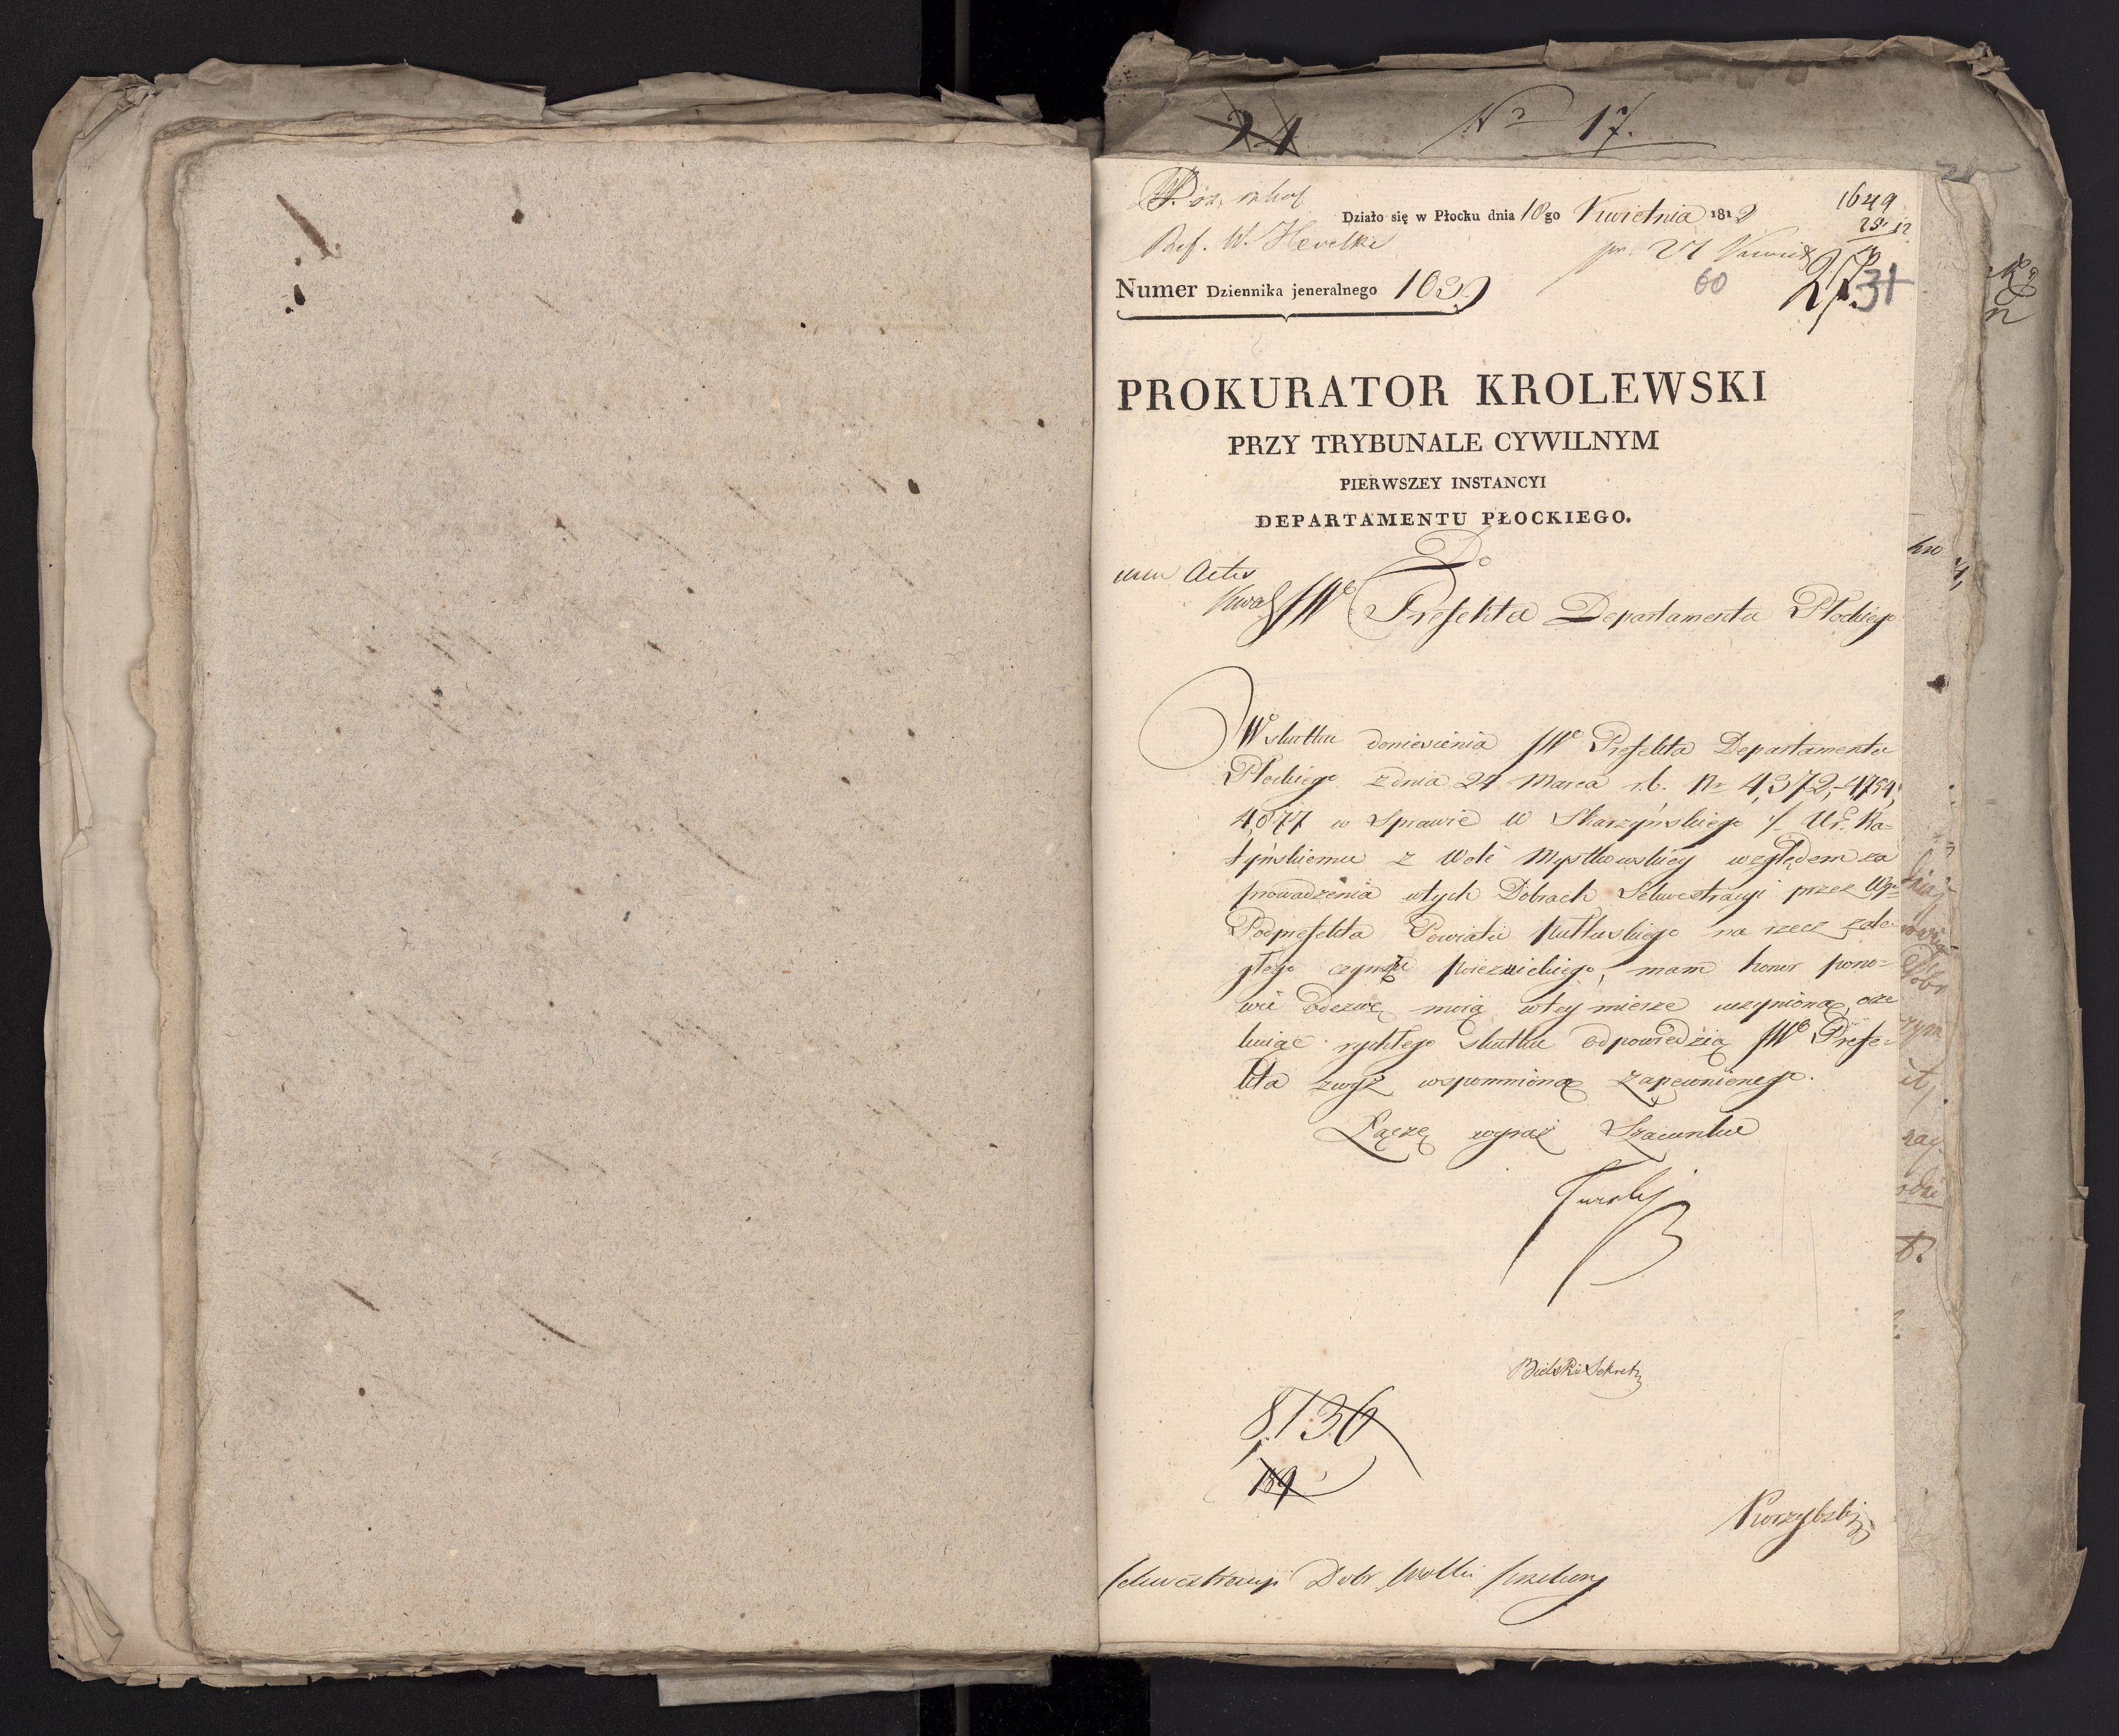 24
Nr 17.
Działo się w Płocku dnia 18go Kwietnia 1812
1649
Ref. W. Hevelke
Numer Dziennika jeneralnego 1039
60
31
PROKURATOR KROLEWSKI
PRZY TRYBUNALE CYWILNYM
PIERWSZEY INSTANCYI
DEPARTAMENTU PŁOCKIEGO.
Do
JWo Prefekta Departamentu Płockiego
W skutku doniesienia JWo Prefekta Departamentu
Płockiego z dnia 24 Marca r.b. Nr 4,372,-4754,
4,077 w Sprawie W Skarzyńskiego Ur. Ka-
tyńskiemu z Woli Mystkowskiey względem za
prowadzenia wtych Dobrach Sekwestracyi przez
Podprefekta Powiatu Pułtuskiego na rzecz zale-
głego czynszu kwiezuickiego, mam honor pono-
wić Odezwę moią wtey mierze uczynioną, ocze
kuiąc rychłego skutku odpowiedzią JWo Prefe-
kta zwyż wspomnioną zapewnionego.
Łączę wyraz Szacunku
Turski
Bielski Sekretz
8,136
189
Sekwestracyi Dobr